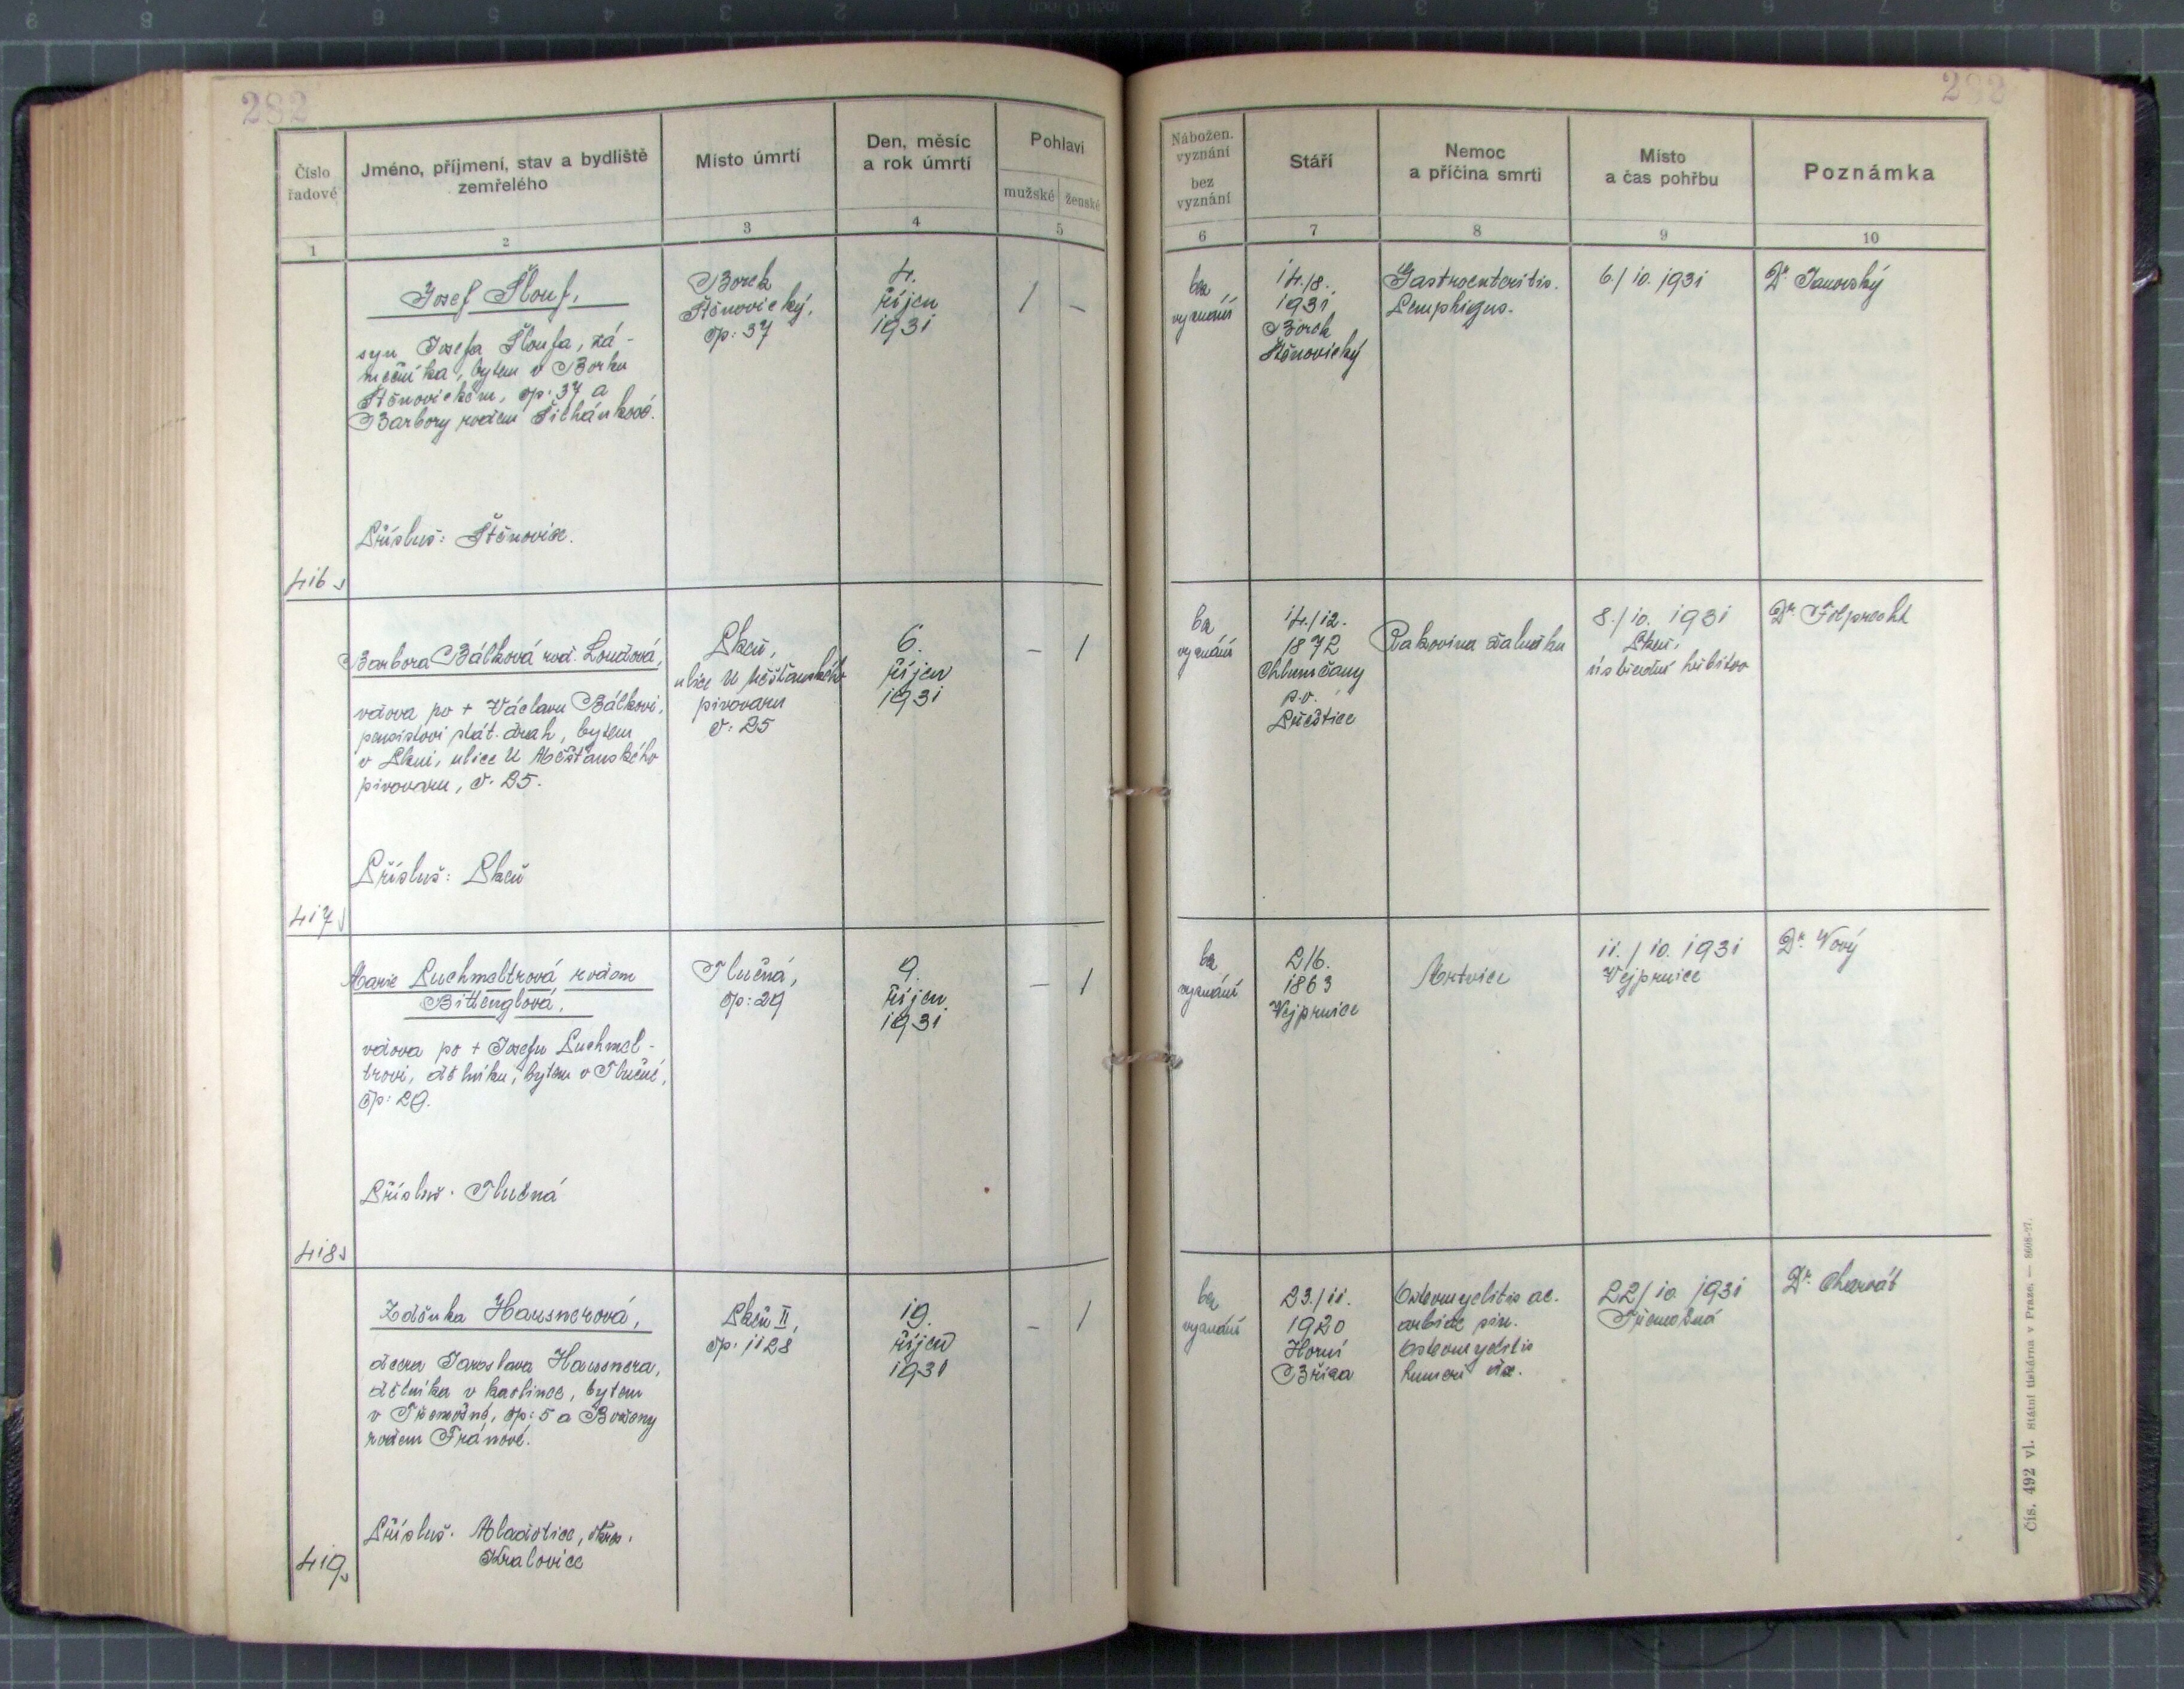 282
Číslo
řadové
Jméno, příjmení, stav a bydliště
zemřelého
Místo úmrtí
Den, měsíc
a rok úmrtí
Pohlaví
mužské
ženské
1
2
3
4
5
Josef Šlouf,
syn Josefa Šloufa, zá-
mečníka, bytem v Borku
Štěnovickém, čp: 37 a
Barbory rodem Šilhánkové.
Přísluš: Štěnovice.
416
Borek
Štěnovický,
čp: 37
4.
říjen
1931
1
–
Barbora Bálková rod. Loudová,
vdova po + Václavu Bálkovi,
pensistovi stát. drah, bytem
v Plzni, ulice U Měšťanského
pivovaru, č. 25.
Přísluš: Plzeň
417
Plzeň,
ulice U Měšťanského
pivovaru
č. 25
6.
říjen
1931
–
1
Marie Puchmeltrová rodem
Bittenglová,
vdova po + Josefu Puchmel-
trovi, dělníku, bytem v Tlučné,
čp: 29.
Přísluš. Tlučná
418
Tlučná,
čp: 29
9.
říjen
1931
–
1
Zdeňka Hausnerová,
dcera Jaroslava Hausnera,
dělníka v kaolince, bytem
v Třemošné, čp: 5 a Boženy
rodem Fránové.
Přísluš. Mladotice, okres.
Kralovice
419
Plzeň II,
čp. 1128
19.
říjen
1931
–
1
282
Nábožen.
vyznání
bez
vyznání
Stáří
Nemoc
a příčina smrti
Místo
a čas pohřbu
Poznámka
6
7
8
9
10
bez
vyznání
14./8.
1931
Borek
Štěnovický
Gastroenteritis.
Pemphigus.
6./10. 1931
Dr. Janovský
bez
vyznání
14./12.
1872
Chlumčany
p. o.
Přeštice
Rakovina žaludku
8./10. 1931
Plzeň,
ústřední hřbitov
Dr. Felprecht
bez
vyznání
2/6.
1863
Vejprnice
Mrtvice
11./10. 1931
Vejprnice
Dr. Nový
bez
vyznání
23./11.
1920
Horní
Bříza
Osteomyelitis ac.
Osteomyelitis
humeri
22/10 1931
Třemošná
Dr. Charvát
Čís. 492 vl. Státní tiskárna v Praze. — 8608-27.